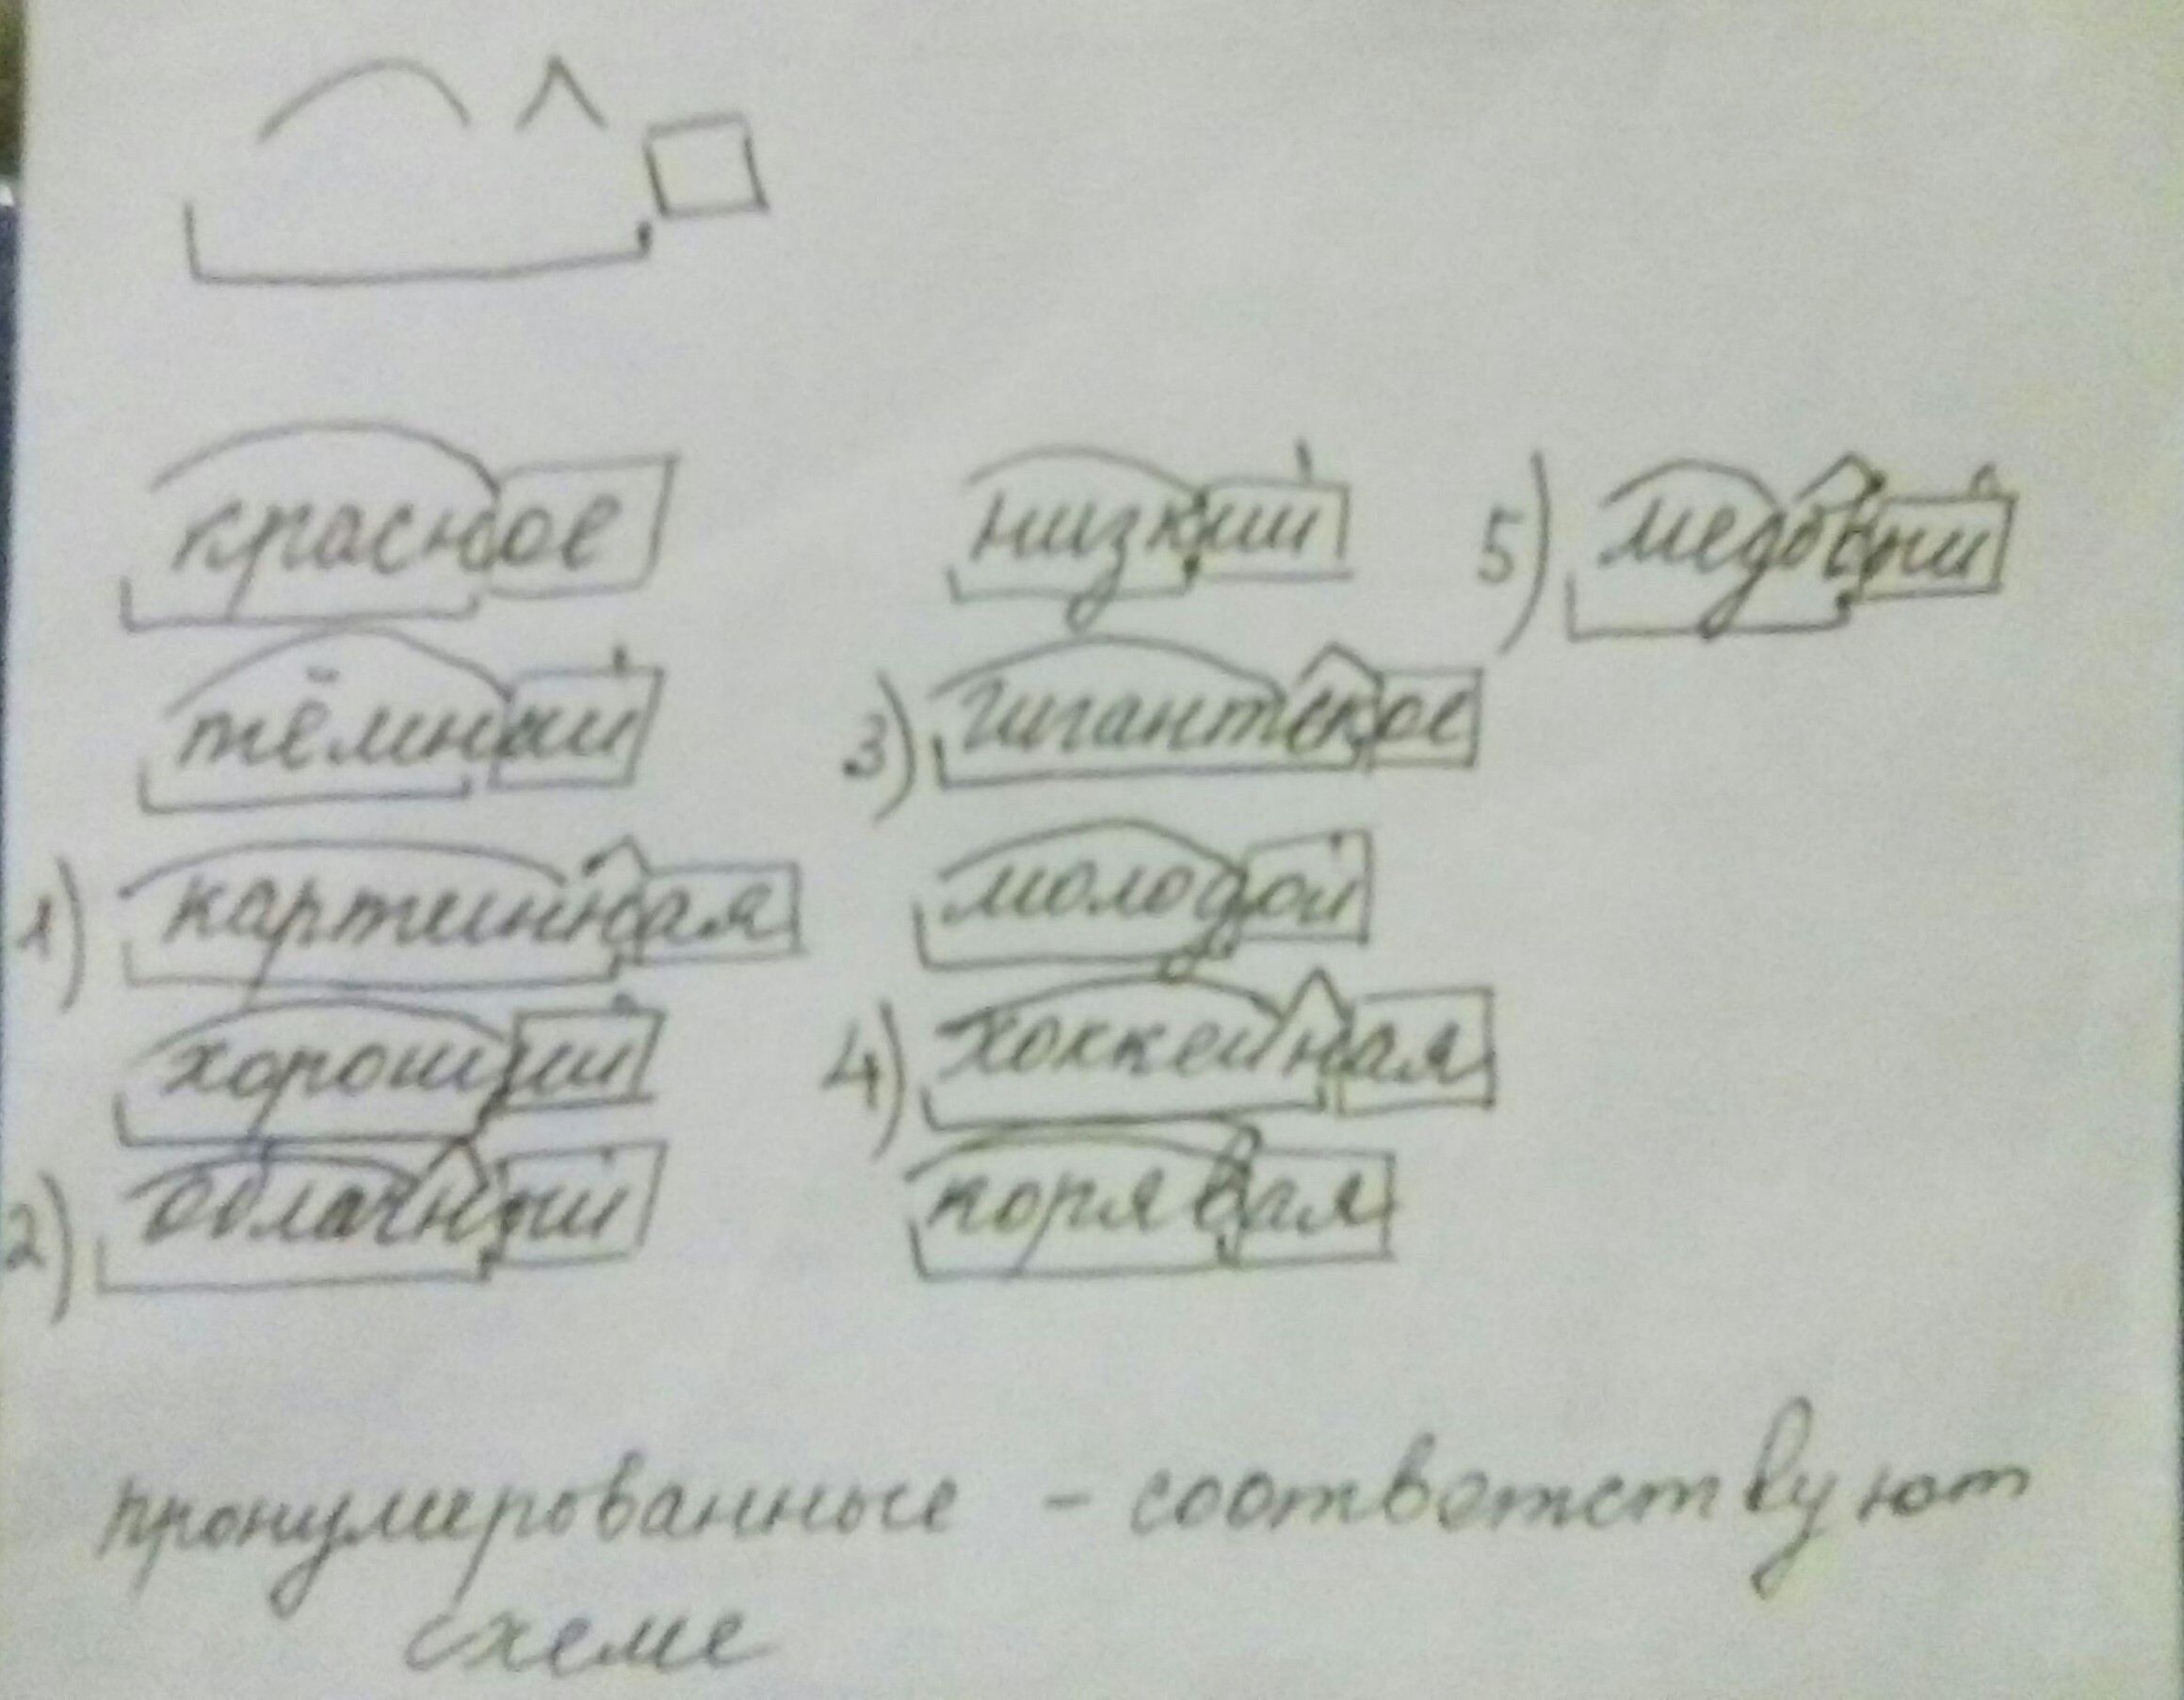 красное
тёмный
1) картинная
хороший
2) облачный
низкий
3) гигантское
молодой
4) хоккейная
корявая
5) медовый
пронумерованные - соответствуют
схеме